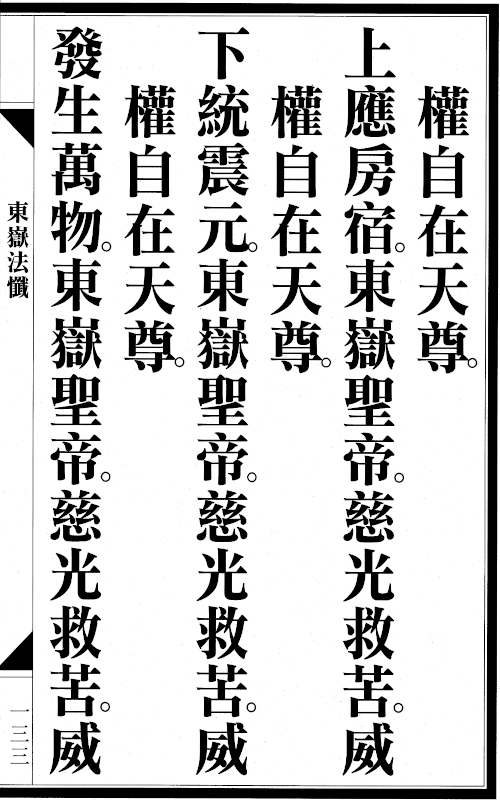 權自在天尊。
上應房宿。東嶽聖帝。慈光救苦。威
權自在天尊。
下統震元。東嶽聖帝。慈光救苦。威
權自在天尊。
發生萬物。東嶽聖帝。慈光救苦。威
東嶽法懺
一三三